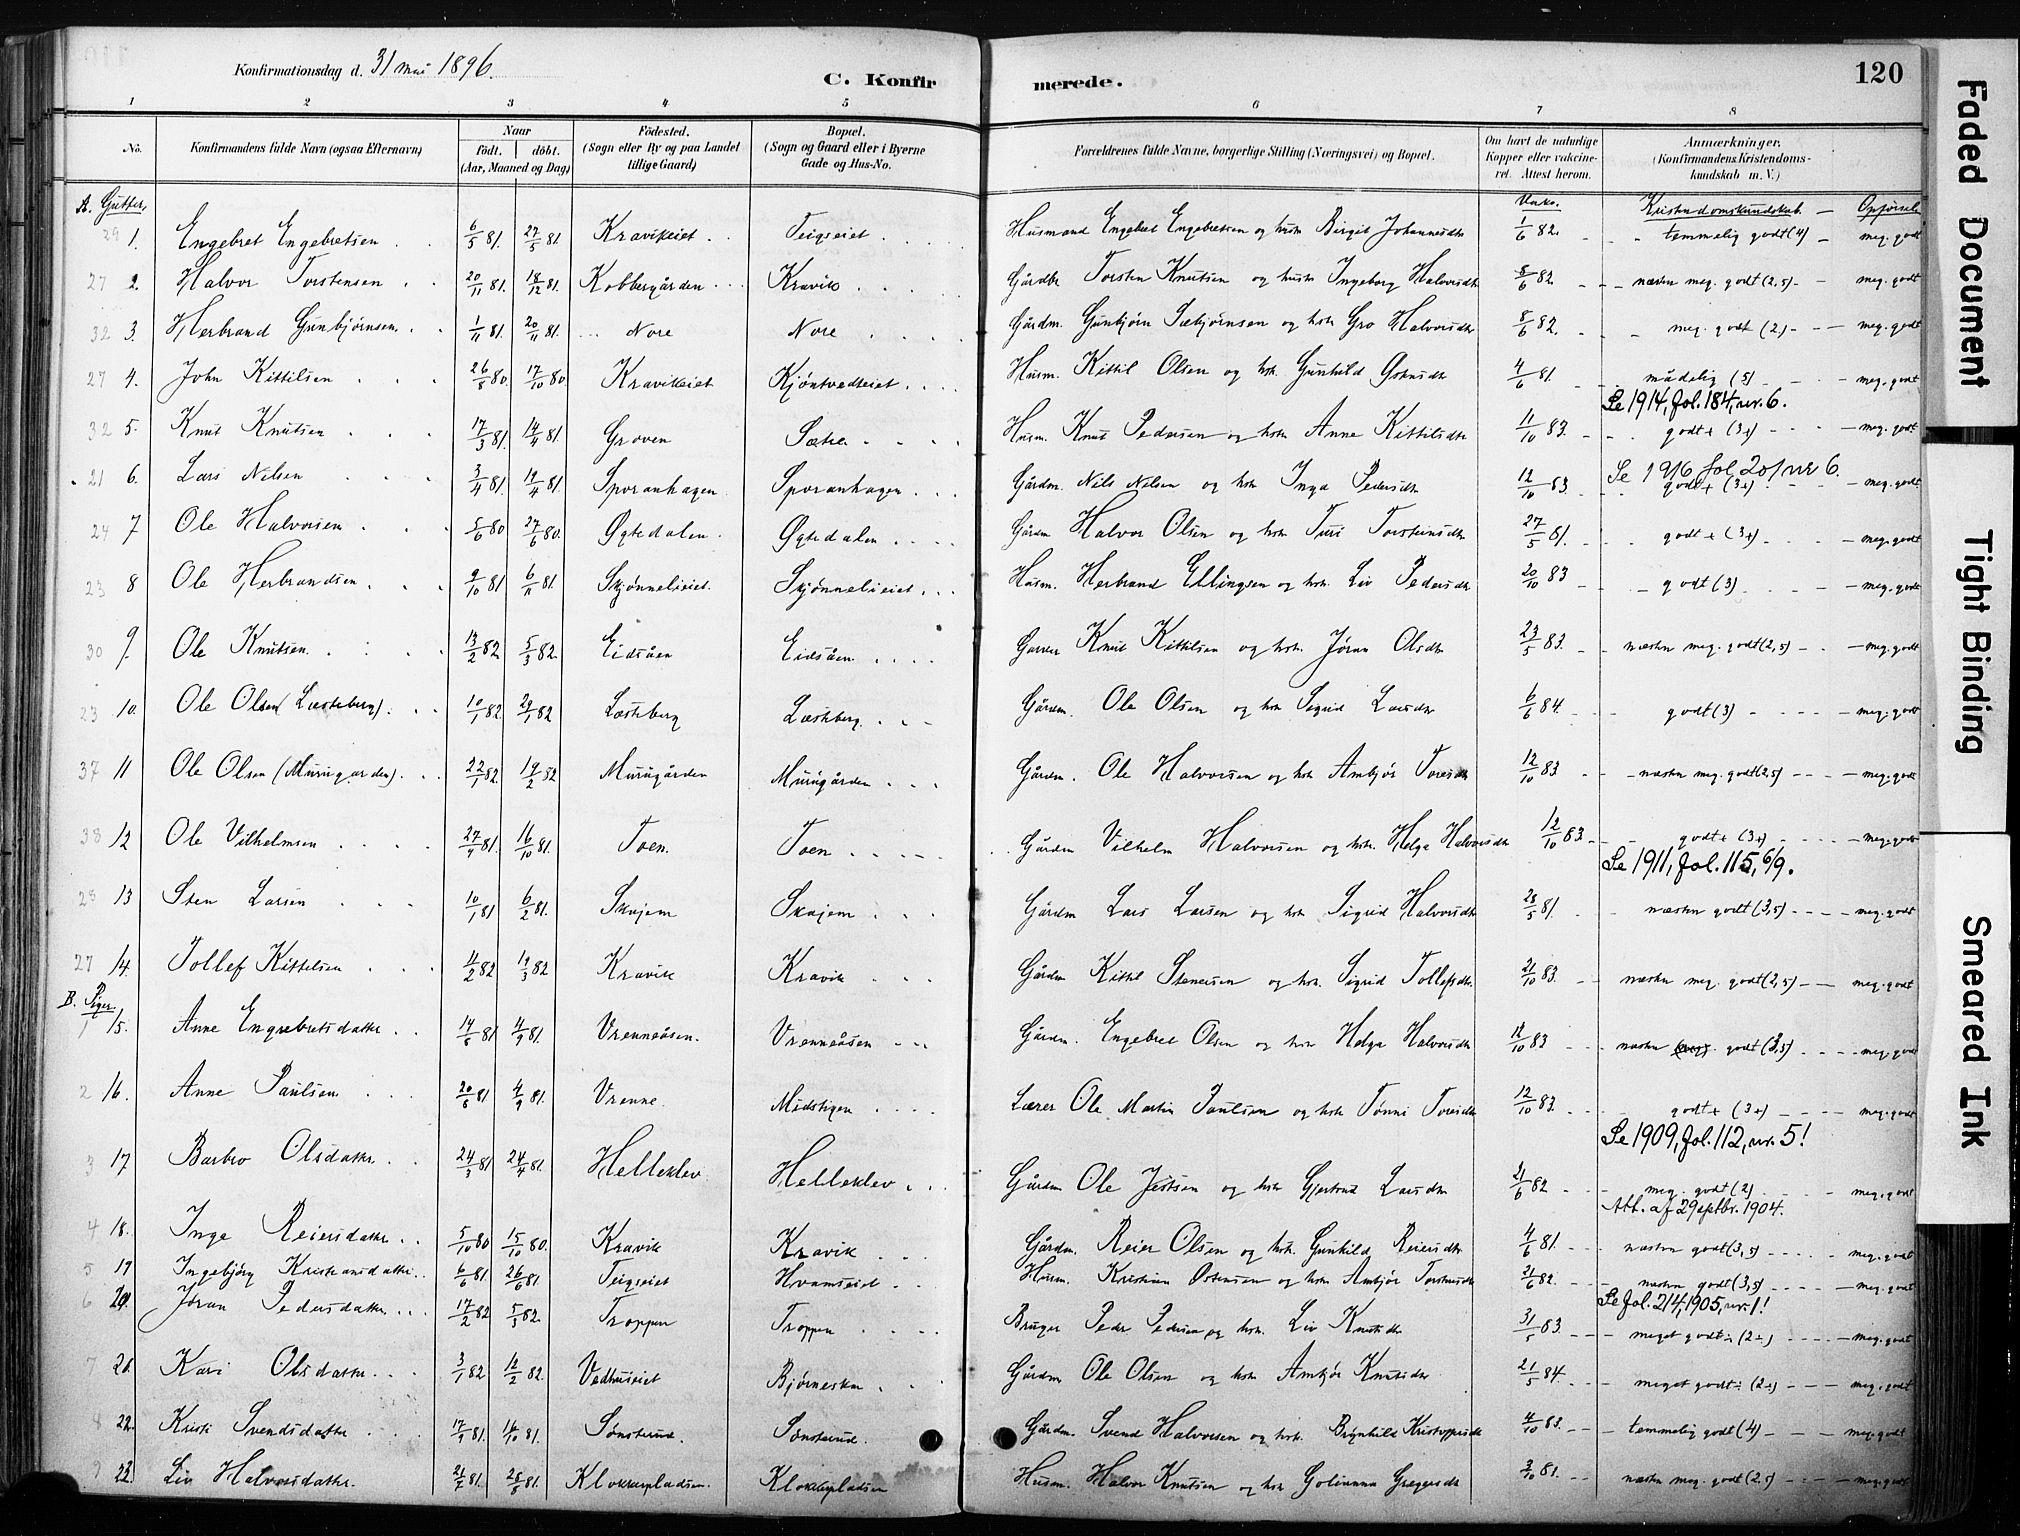 Konfirmationsdag d. 31 mai 1896.
C. Konfirmerede.
120
1 2 3 4 5 6 7 8
No. Konfirmandens fulde Navn (ogsaa Efternavn) Naar født. døbt. (Aar, Maaned og Dag) Fødested. (Sogn eller By og paa Landet tillige Gaard) Bopæl. (Sogn og Gaard eller i Byerne Gade og Hus-No. Forældrenes fulde Navne, borgerlige Stilling (Næringsvei) og Bopæl. Om havt de naturlige Kopper eller vakcineret. Attest herom. Anmærkninger. (Konfirmandens Kristendomskundskab m. V.)
A. Gutter. Vakc. Kristendomskundskab. — Opførsel
29 1. Engebret Engebretsen 6/5 81. 27/5 81 Kravikeiet Teigseiet Husmand Engebret Engebretsen og hustr Birgit Johannesdtr 1/6 82. temmelig godt (4) — meg. godt
27 2. Halvor Torstensen 20/11 81. 18/12 81. Kobbergården Kravik Gårdbr Torsten Knutsen og hustr Ingeborg Halvorsdtr 8/6 82 næsten meg. godt (2,5) — meg. godt
32 3. Herbrand Gunbjørnsen 1/11 81. 20/11 81. Nore Nore Gårdm. Gunbjørn Sæbjørnsen og hstr Gro Halvorsdtr 8/6 82. meg. godt (2) — meg. godt
27 4. John Kittilsen 26/8 80. 17/10 80. Kravikeiet Kjøntvedteiet Husm. Kittil Olsen og hstr. Gunhild 4/6 81. mådelig (5) — meg. godt
Se 1914, fol. 184, nr. 6.
32 5. Knut Knutsen 17/3 81. 14/4 81. Groven Sætra Husm. Knut Pedersen og hstr Anne Kittilsdtr 11/10 83. godt+ (3+) — meg. godt
Se 1916 fol 201 nr 6.
21 6. Lars Nilsen 3/4 81. 19/4 81. Sporanhagen Sporanhagen Gårdm. Nils Nilsen og hstr Inga Pedersdtr 12/10 83 godt+ (3+) meg. godt
24 7 Ole Halvorsen 5/6 80 27/6 80. Øgtedalen Øgtedalen Gårdm Halvor Olsen og hstr Turi Torstensdtr 27/5 81. godt+ (3+) — meg. godt
23 8 Ole Herbrandsen 9/10 81 6/11 81. Skjønnelieiet. Skjønnelieiet Husm. Herbrand Ellingsen og hstr. Liv Pedersdtr 20/10 83 godt (3) — meg. godt
30 9. Ole Knutsen 13/2 82 5/3 82. Eidsåen Eidsåen Knut Kittilsen og hstr. Jøran Olsdtr 23/5 83. næsten meg. godt (2,5) — meg. godt
23 10. Ole Olsen (Læsteberg) 10/1 82 29/1 82 Læsteberg Læsteberg Gårdm. Ole Olsen og hstr Sigrid Larsdtr 6/6 84. godt (3) — meg. godt
37 11 Ole Olsen (Murugarden) 22/1 82. 19/2 82 Murugården Murugården Gårdm. Ole Halvorsen og hstr Ambjør Toresdtr 12/10 83 næsten meg. godt (2,5) — meg. godt
38 12 Ole Vilhelmsen 27/9 81. 16/10 81. Toen. Toen Gårdm Vilhelm Halvorsen og hstr. Helga Halvorsdtr 12/10 83 godt+ (3+) — meg. godt
Se 1911, fol. 115, 6/9.
28 13 Sten Larsen 10/1 81 6/2 81. Skajem Skajem Gårdm Lars Larsen og hstr Sigrid Halvorsdtr 28/5 81. næsten godt (3,5) — meg. godt
27 14. Tollef Kittelsen 11/2 82 19/3 82 Kravik Kravik Gårdm. Kittil Stenersen og hstr. Sigrid Tollefsdtr 21/10 83. næsten meg. godt (2,5) — meg. godt
B. Piger.
1 15. Anne Engebretsdatter 14/8 81 4/9 81. Vrenneåsen. Vrenneåsen Gårdm. Engebret Olsen og hstr Helga Halvorsdtr 12/10 83 næsten godt (3,5) — meg. godt
2 16. Anne Paulsen 20/8 81 4/9 81. Vrenne. Midstigen Lærer Ole Martin Paulsen og hstr Tønni Toresdtr 12/10 83. godt+ (3+) — meg. godt
Se 1909, fol. 112, nr. 5!
3 17 Barbro Olsdatter 24/3 81 24/4 81. Helleklev Helleklev Gårdm Ole Jostsen og hstr Gjertrud Larsdtr 21/6 82 meg. godt (2) — meg. godt
Att. af 29 septbr. 1904.
4 18. Inge Reiersdatter 5/10 80 15/10 80. Kravik Kravik Gårdm. Reier Olsen og hstr. Gunhild Reiersdtr 4/6 81. næsten godt (3,5) meg. godt
5 19 Ingebjørg Kristiansdatter 6/6 81. 26/6 81 Teigseiet Hvamseiet Husm. Kristian Østensen og hstr Ambjør Torstensdtr 21/6 82. næsten godt (3,5) meg. godt
Se fol. 214, 1905, nr. 1!
6 20. Jøran Pedersdatter 17/2 82 5/3 82. Troppen Troppen Bruger Peder Pedersen og hstr. Liv Knutsdtr 31/5 83. meget godt÷ (2÷) — meg. godt
7 21. Kari Olsdatter 3/1 82 12/2 82. Vedhuseiet Bjørneskar Gårdm Ole Olsen og hstr Ambjør Knutsdtr 21/5 84. meget godt÷ (2÷) — meg. godt
8 22. Kristi Svendsdatter 17/9 81. 16/10 81. Sønsterud. Sønsterud. Gårdm. Svend Halvorsen og hstr. Brynhild Kristoffersdtr 4/10 83. temmelig godt (4) — meg. godt
9 23. Liv Halvorsdatter 21/2 81. 28/8 81. Klokkerpladsen. Klokkerpladsen Husm. Halvor Knutsen og hstr Golianna Gregersdtr 3/10 81. næsten meg. godt (2,5) — meg. godt
Faded Document
Tight Binding
Smeared Ink